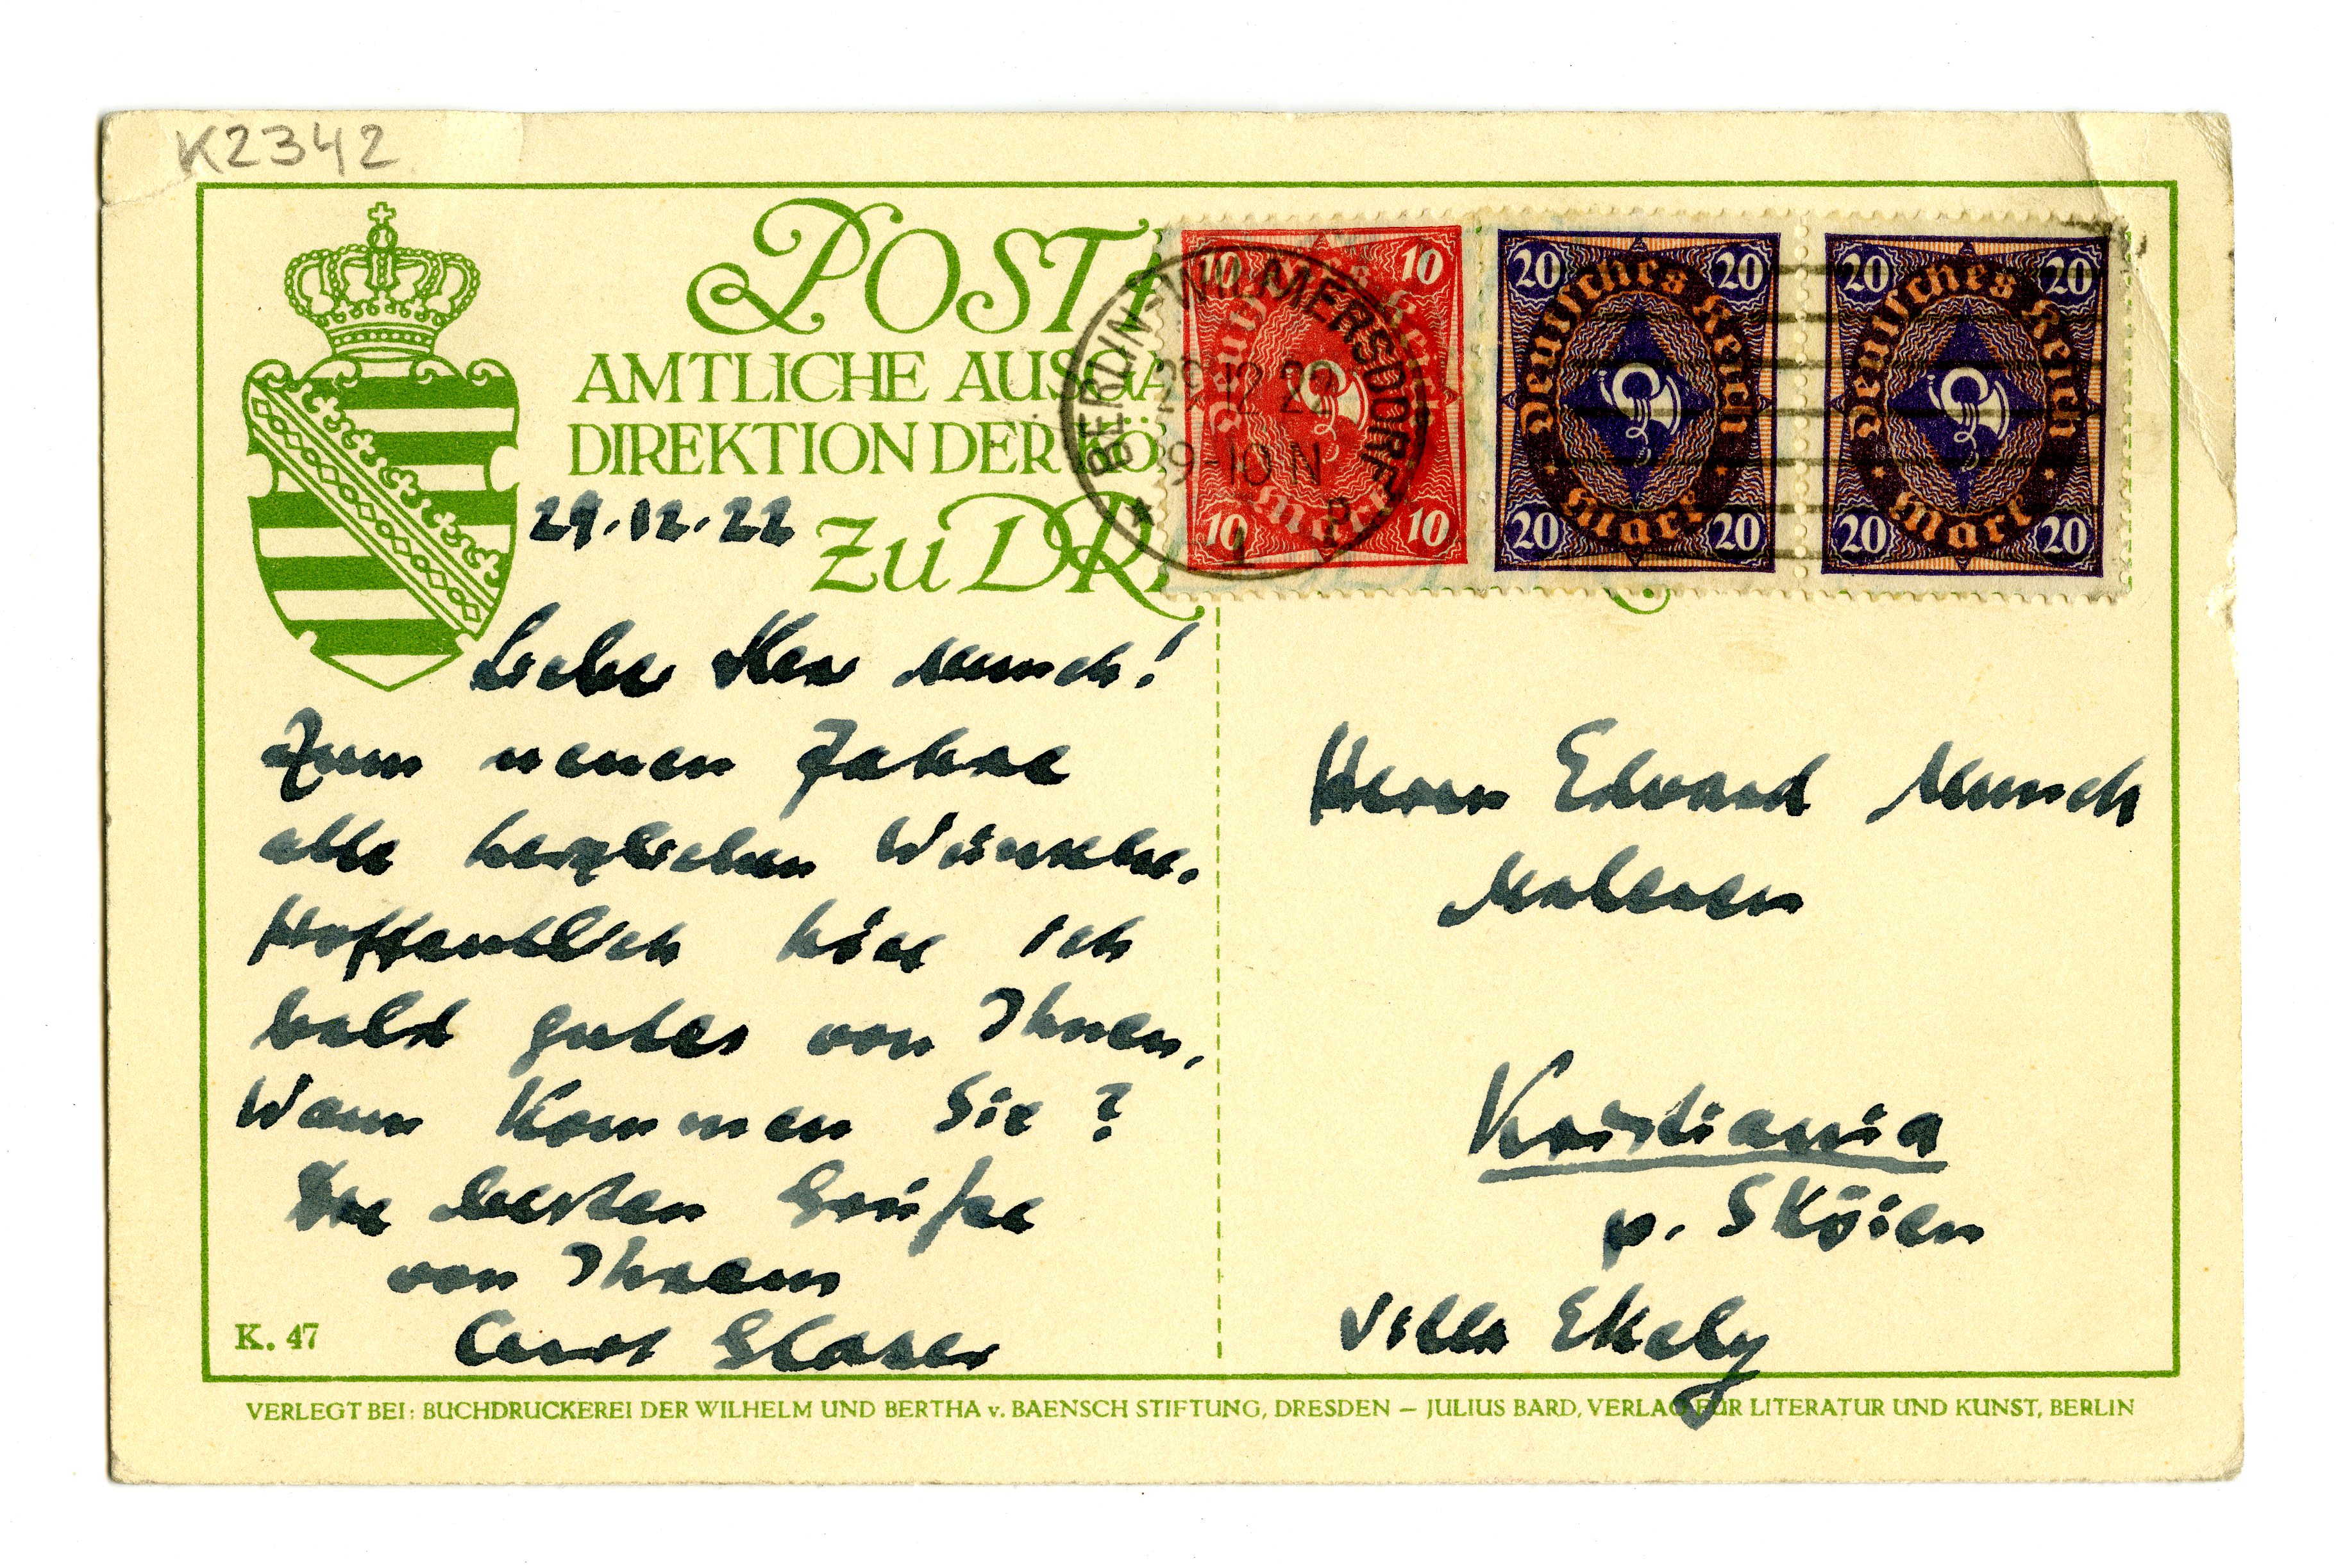 K2342
POSTK
AMTLICHE AUSGA
DIREKTION DER KÖ
ZU DR
BERLIN-WILMERSDORF
29.12.22
9-10 N
* 1 B
10 10
Deutsches Reich
Mark
10 10
20 20
Deutsches Reich
Mark
20 20
20 20
Deutsches Reich
Mark
20 20
29.12.22
Lieber Herr Munch!
Zum neuen Jahre
alle herzlichen Wünsche.
Hoffentlich höre ich
bald gutes von Ihnen,
Wann kommen Sie?
Die besten Grüße
von Ihrem
Curt Glaser
Herrn Edvard Munch
Maleren
Kristiania
p. Sköien
Villa Ekely
K. 47
VERLEGT BEI: BUCHDRUCKEREI DER WILHELM UND BERTHA v. BAENSCH STIFTUNG, DRESDEN — JULIUS BARD, VERLAG FÜR LITERATUR UND KUNST, BERLIN